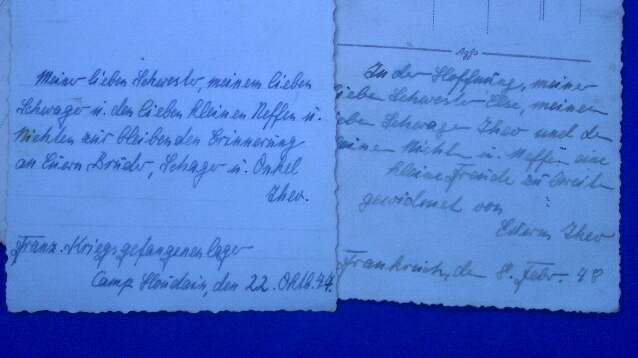 Meiner lieben Schwester, meinem lieben
Schwager u. den lieben kleinen Neffen u.
Nichten zur bleibenden Erinnerung
an Euern Bruder, Schager u. Onkel
Theo.
Franz. Kriegsgefangenenlager
Camp Houdain, den 22. Oktb. 47.
Agfa
In der Hoffnung, meiner
lieben Schwester Else, meinem
ben Schwager Theo und den
einen Nichten u. Neffen eine
kleine Freude zu bereiten
gewidmet von
Euerm Theo
Frankreich, den 8. Febr. 48